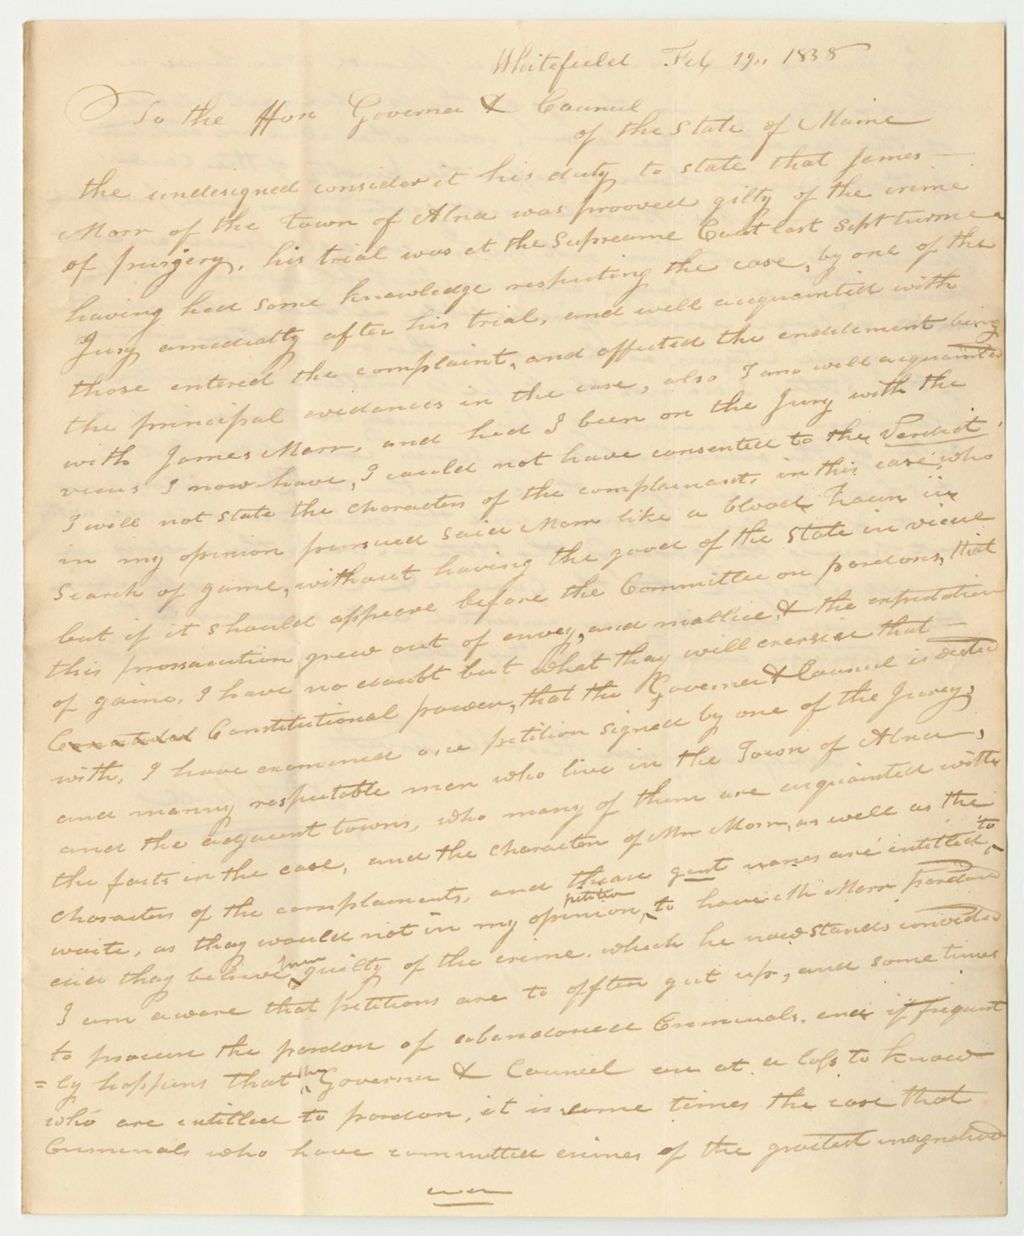 Whitefield Feb 19,, 1838
To the Hon Governer & Councel
of the State of Maine
the undesigned consider it his duty to state that James
Marr of the town of Alna was prooved gilty of the crime
of prurgery, his trial was at the Supreame Cout last Sept turme
having had some knowledge respecting the case, by one of the
Jury amediatly after his trial, and well acquainted with
those entered the complaint, and affected the enditement being
the principal evidances in the case, also I am well acquainted
with James Marr, and had I been on the Jury with the
views I now have, I could not have consented to the Verdict,
I will not state the characters of the complainants, in this case, who
in my opinion pursued said Marr like a blood houn in
Search of game, without having the good of the State in view
but if it should appeare before the Committee on pardons, that
this prossacution grew out of envey, and mallice, & the expectation
of gaine, I have no doubt but what thay will exersise that
Constitutional power, that the Governer & Councel is vested
with, I have examined one petition signed by one of the Jurey,
and manny respectable men who live in the Town of Alna,
and the adjacent towns, who many of them are acquainted with
the facts in the case, and the character of Mr Marr, as well as the
characters of the complainents, and thear names are entitled to
waite, as thay would not in my opinion, petition to have Mr Marr pardond
did thay believe him guilty of the crime. which he now stands convicted
I am aware that petitions are to offten gut up, and some times
to procure the pardon of abandoned Criminals. and it frequent
=ly happens that the Governer & Councel are at a loss to know
who are entitled to pardon, it is some times the case that
Criminals who have committed crimes of the greatest magnatud